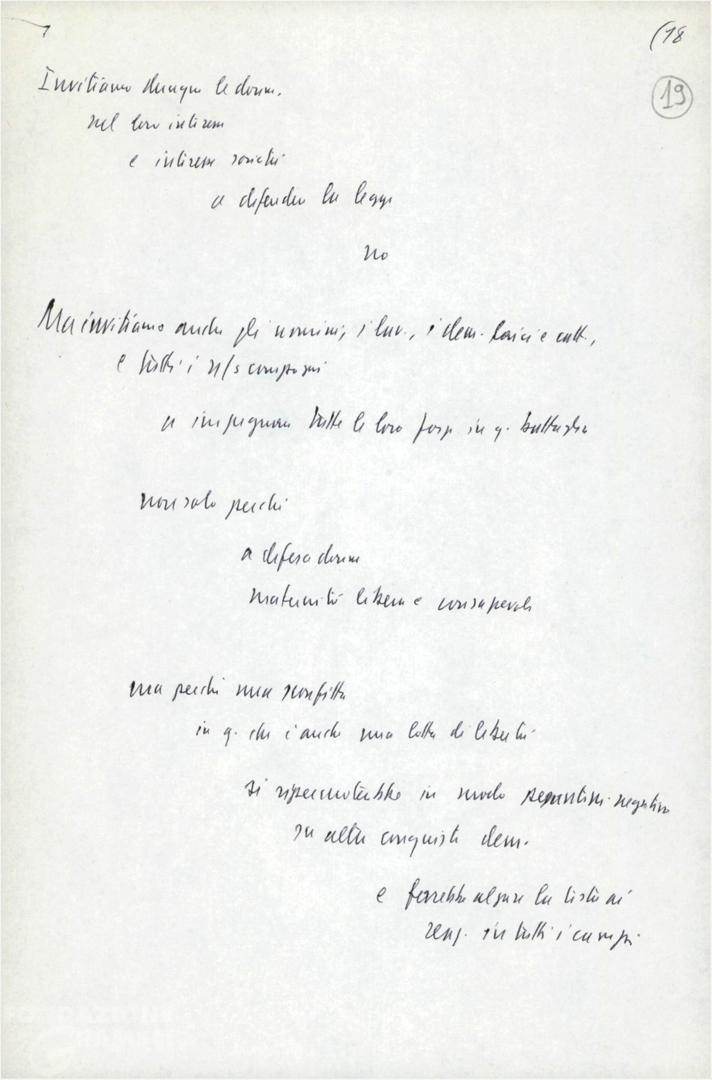 (18
19
Invitiamo dunque le donne
nel loro interesse
e interesse società
a difendere la legge
no
Ma invitiamo anche gli uomini, i lav., i dem. laici e catt.,
e tutti i n/s compagni
a impegnare tutte le loro forze in q. battaglia
non solo perché
a difesa donne
maternità libera e consapevole
ma perché una sconfitta
in q. che è anche una lotta di libertà
si ripercuoterebbe in modo negativo
su altre conquiste dem.
e farebbe alzare la testa ai
reaz. in tutti i campi